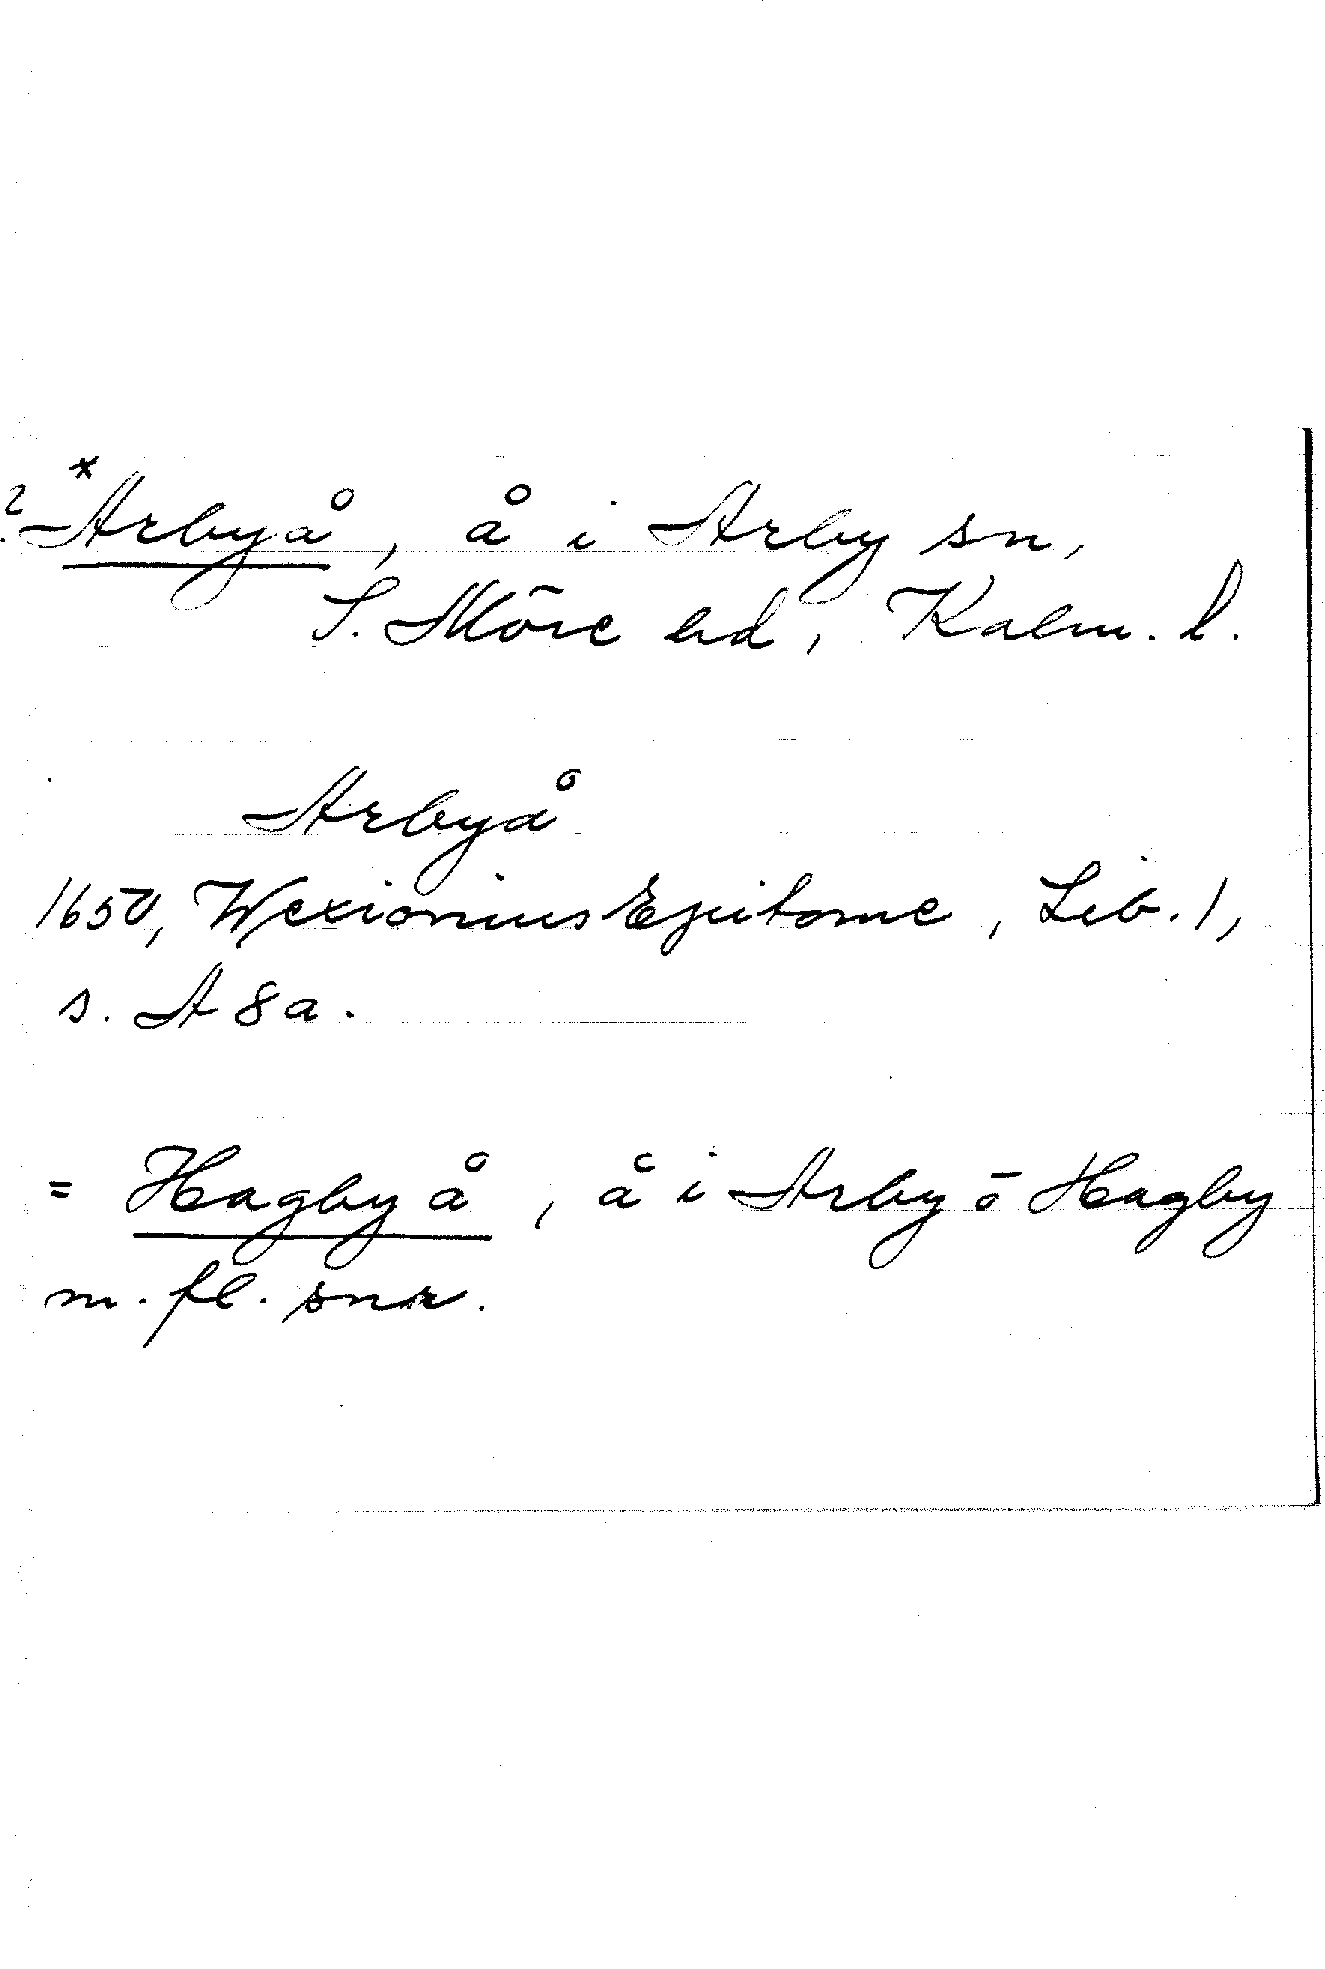 ? *Arbyå, å i Arby sn,
S. Möre hd, Kalm. l.
Arbyå
1650, Wexionius Epitome, Lib. 1,
s. A 8a.
= Hagbyå, å i Arby o Hagby
m. fl. snr.